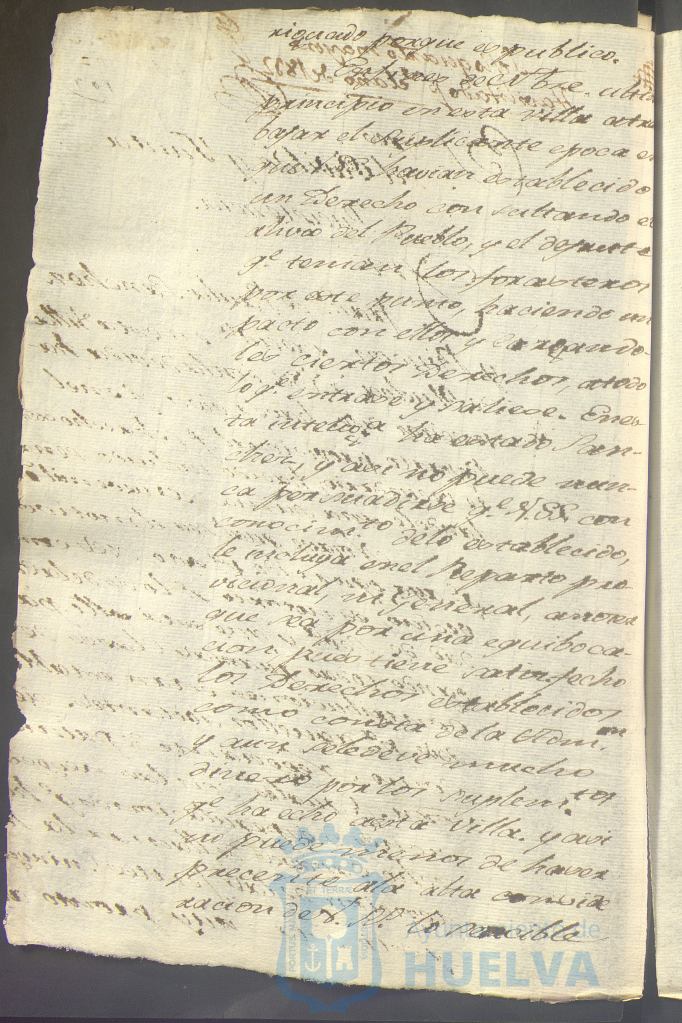 riguado porque es publico.
En fines de Obre. ultimo
principio en esta villa a tra-
bajar el suplicante epoca en
que havian establecido
un Derecho consultando el
alivio del Pueblo, y el desfrute
qe. tenian los forasteros
por este punto, haciendo un
pacto con ellos y cargando-
les ciertos Derechos, a todo
lo qe. entrase y saliese. En es-
ta inteliga. ha estado San-
chez, y asi no puede nun-
ca persuadirse qe. V.SS. con
conocimto. de lo establecido,
le incluya en el Reparto pro-
visional, ni general, a no ser
que sea por una equiboca-
cion pues tiene satisfecho
los Derechos establecidos
como consta de la Admon.
y aun se le deve mucho
dinero por los suplemtos.
qe. ha echo a esta Villa. y asi
no puede menos de haver
precente a la alta conside
racion de V. SS. lo sencible
Ayuntamiento de
HUELVA